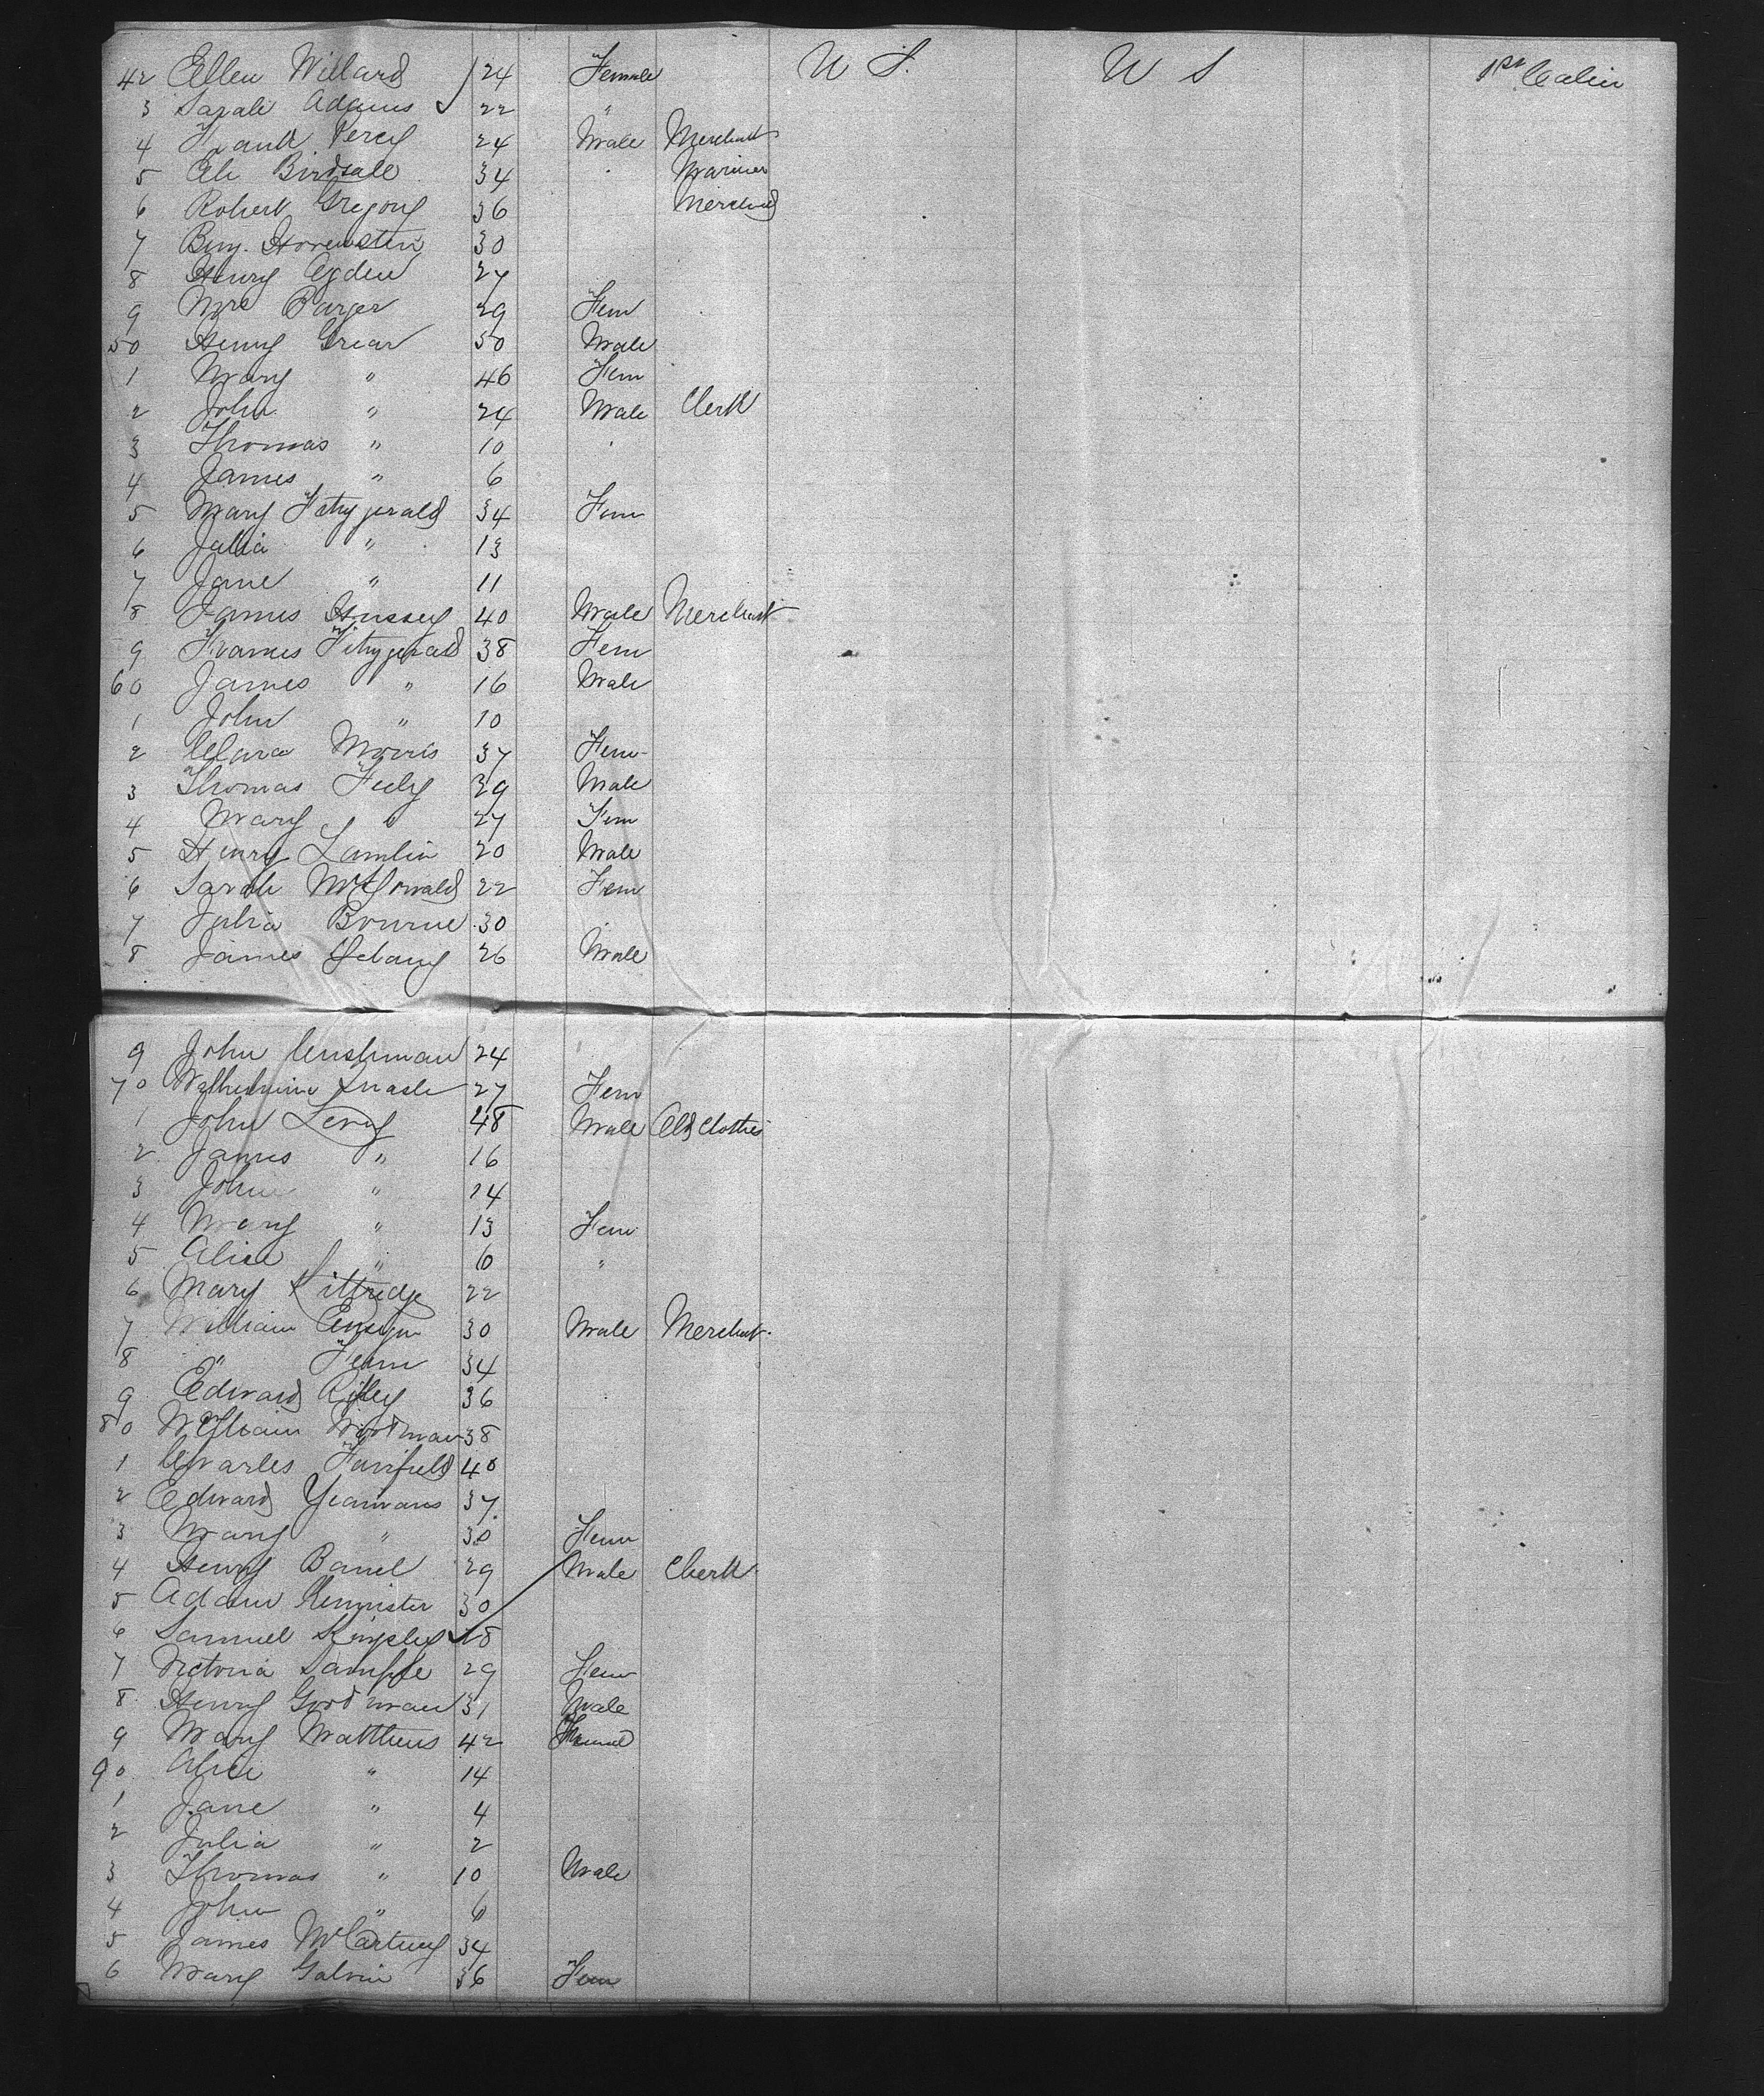 42 Ellen Willard 24 Female U S. U S 1st Cabin
3 Sarah Adams 22 "
4 Frank Percy 24 Male Merchant
5 Eli Birdsall 34 Mariner
6 Robert Gregory 36 Merchant
7 Benj. 30
8 Henry Ogden 27
9 Mrs Barger 29 Fem
50 Henry Grear 50 Male
1 Mary " 46 Fem
2 John " 24 Male Clerk
3 Thomas " 10
4 James " 6
5 Mary Fitzgerald 34 Fem
6 Julia " 13
7 Jane " 11
8 James Hussey 40 Male Merchant
9 Frances Fitzgerald 38 Fem
60 James " 16 Male
1 John " 10
2 Clara Morris 37 Fem
3 Thomas Feely 29 Male
4 Mary " 27 Fem
5 Henry Lamlin 20 Male
6 Sarah 22 Fem
7 Julia Bourne 30
8 James 26 Male
9 John Cushman 24
70 Wilhelmina 27 Fem
1 John Levy 48 Male Old Clothes
2 James " 16
3 John " 14
4 Mary " 13 Fem
5 Alice " 6 "
6 Mary Kittredge 22
7 William Ensign 30 Male Merchant.
8 " 34
9 Edward Riley 36
80 William Woodman 38
1 Charles Fairfield 40
2 Edward Yeamans 37
3 Mary " 30 Fem
4 Henry Barrel 29 Male Clerk
5 Adam 30
6 Samuel Kingsley 28
7 Victoria Sample 29 Fem
8 Henry Goodman 31 Male
9 Mary Matthews 42 Female
90 Alice " 14
1 Jane " 4
2 Julia " 2
3 Thomas " 10 Male
4 John " 6
5 James McCartney 34
6 Mary Galvin 36 Fem